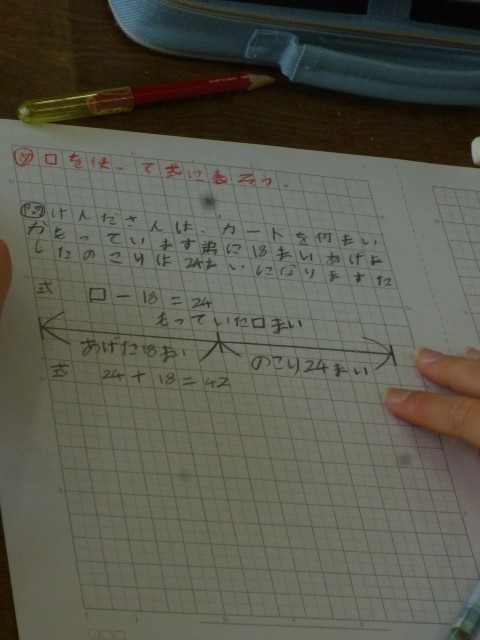 め □を使って式に表そう。
けんたさんは、カードを何まい
かもっています弟に18まいあげま
したのこりは24まいになりました
式 □－18＝24
もっていた□まい
あげた18まい のこり24まい
式 24＋18＝42